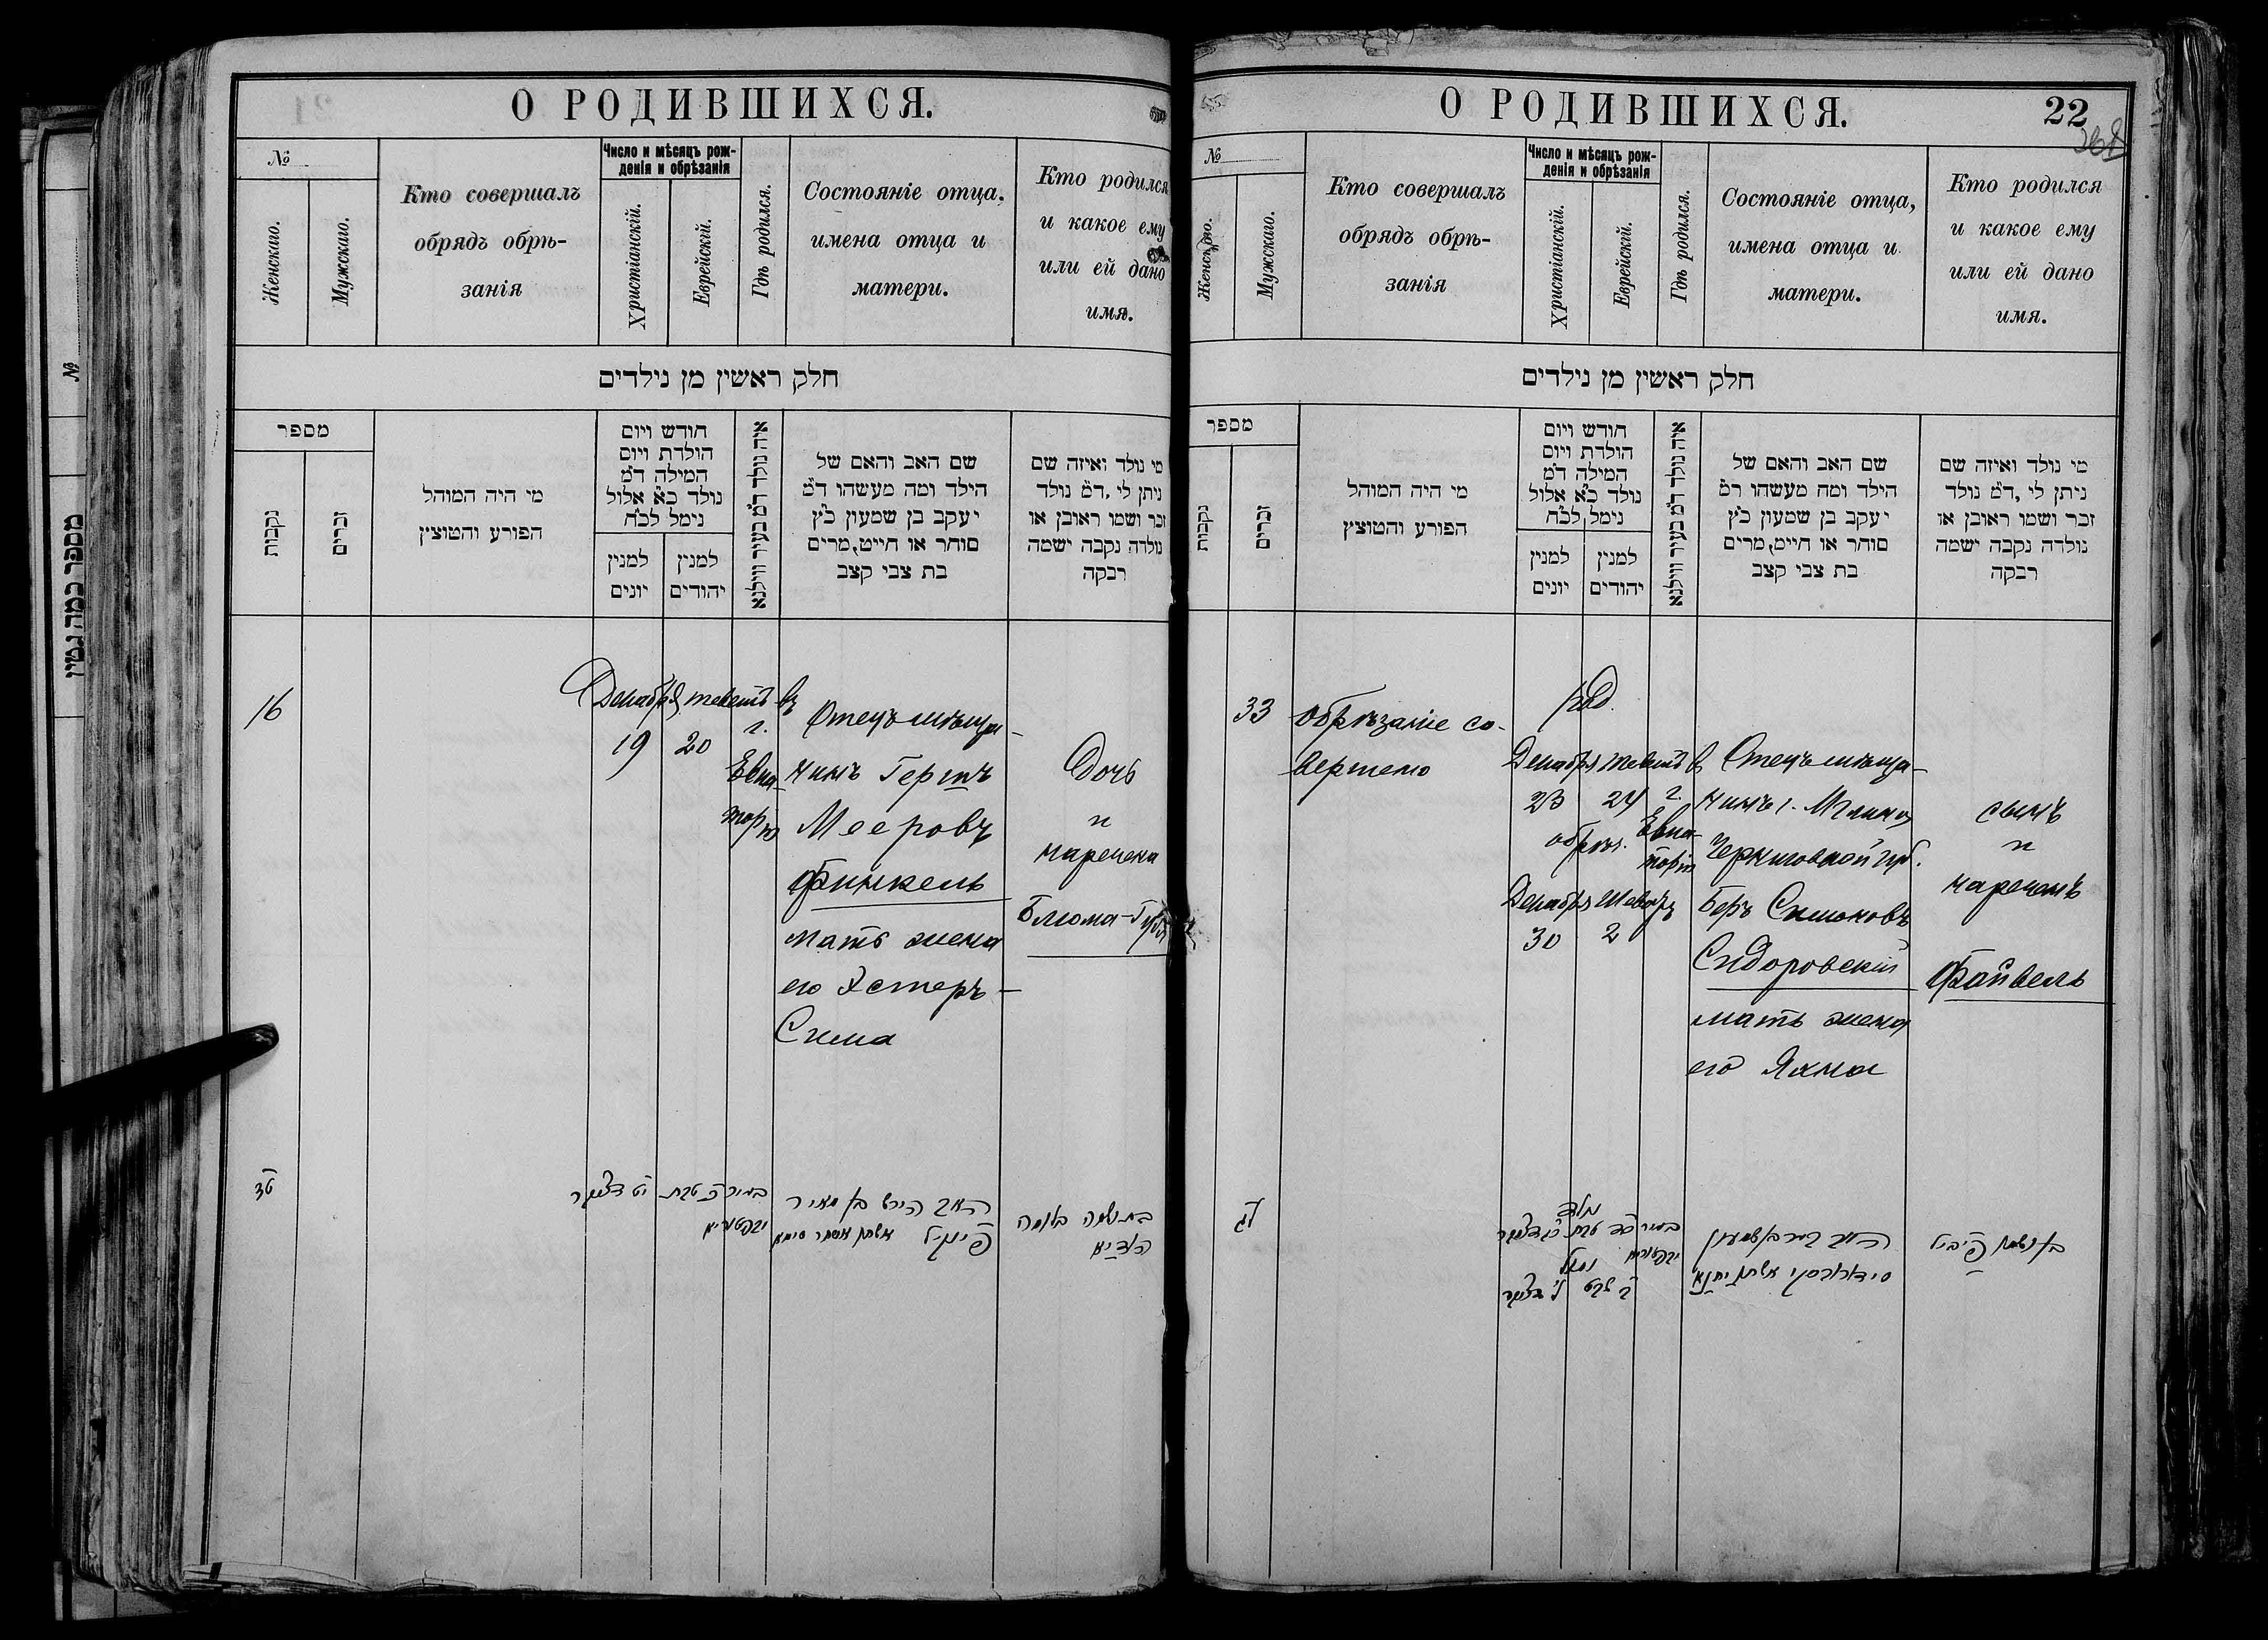 О РОДИВШИХСЯ.
№
Женскаго.
Мужскаго.
Кто совершалъ
обрядъ обрѣ-
занія
Число и мѣсяцъ рож-
денія и обрѣзанія
Христіанскій.
Еврейскій.
Гдѣ родился.
Состояніе отца.
имена отца и
матери.
Кто родился
и какое ему
или ей дано
имя.
חלק ראשין מן נילדים
מספר
נקבות
זכרים
מי היה המוהל
הפורע והמוצץ
חודש ויום
הולדת ויום
המילה ד״מ
נולד כ״א אלול
נימל לכ״ח
למנין
יונים
למנין
יהודים
איה נולד ד״מ בעיר ווילנא
שם האב והאם של
הילד ומה מעשהו ד״מ
יעקב בן שמעון כ״ץ
סוחר או חייט, מרים
בת צבי קצב
מי נולד ואיזה שם
ניתן לי, ד״מ נולד
זכר ושמו ראובן או
נולדה נקבה ישמה
רבקה
16
Декабря
19
теветъ
20
въ
г.
Евпа-
торіи
Отецъ мѣща-
нинъ Гершъ
Мееровъ
Финкель
мать жена
его Эстеръ-
Сима
Дочь
и
наречена
Блюма-
האב הירש בן מאיר
פינקיל
О РОДИВШИХСЯ.
22
№
Женскаго.
Мужскаго.
Кто совершалъ
обрядъ обрѣ-
занія
Число и мѣсяцъ рож-
денія и обрѣзанія
Христіанскій.
Еврейскій.
Гдѣ родился.
Состояніе отца,
имена отца и
матери.
Кто родился
и какое ему
или ей дано
имя.
חלק ראשין מן נילדים
מספר
נקבות
זכרים
מי היה המוהל
הפורע והמוצץ
חודש ויום
הולדת ויום
המילה ד״מ
נולד כ״א אלול
נימל לכ״ח
למנין
יונים
למנין
יהודים
איה נולד ד״מ בעיר ווילנא
שם האב והאם של
הילד ומה מעשהו ד״מ
יעקב בן שמעון כ״ץ
סוחר או חייט, מרים
בת צבי קצב
מי נולד ואיזה שם
ניתן לי, ד״מ נולד
זכר ושמו ראובן או
נולדה נקבה ישמה
רבקה
33
обрѣзаніе со-
вершено
род.
Декабря
23
теветъ
24
обрѣз.
Декабря
30
Шеватъ
2
в
г.
Евпа-
торіи
Отецъ мѣща-
нинъ г. Мглина
Черниговской губ.
Беръ Симоновъ
Сидоровскій
мать жена
его Яхна
сынъ
и
нареченъ
Файвель
לג
נולד
נמול
האב בער בן שמעון
סידאראווסקי אשתו יחנא
בן ושמו פייביל